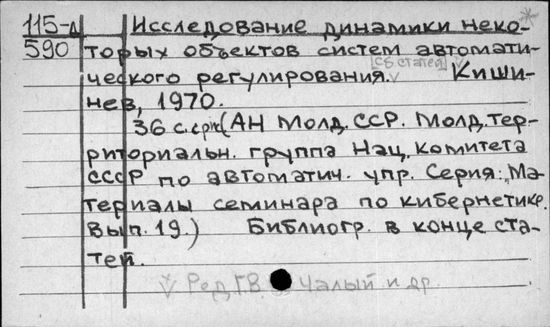 115-д Исследование динамики неко-
590 торых объектов систем автомати-
[Сб. статей]
ческого регулирования. Киши-
нев, 1970.
36 с. (АН Молд. ССР. Молд. тер-
риториальн. группа Нац. комитета
СССР по автоматич. упр. Серия: Ма-
териалы семинара по кибернетике.
Вып. 19.) Библиогр. в конце ста-
тей.
Ред. Г.В. Чалый и др.